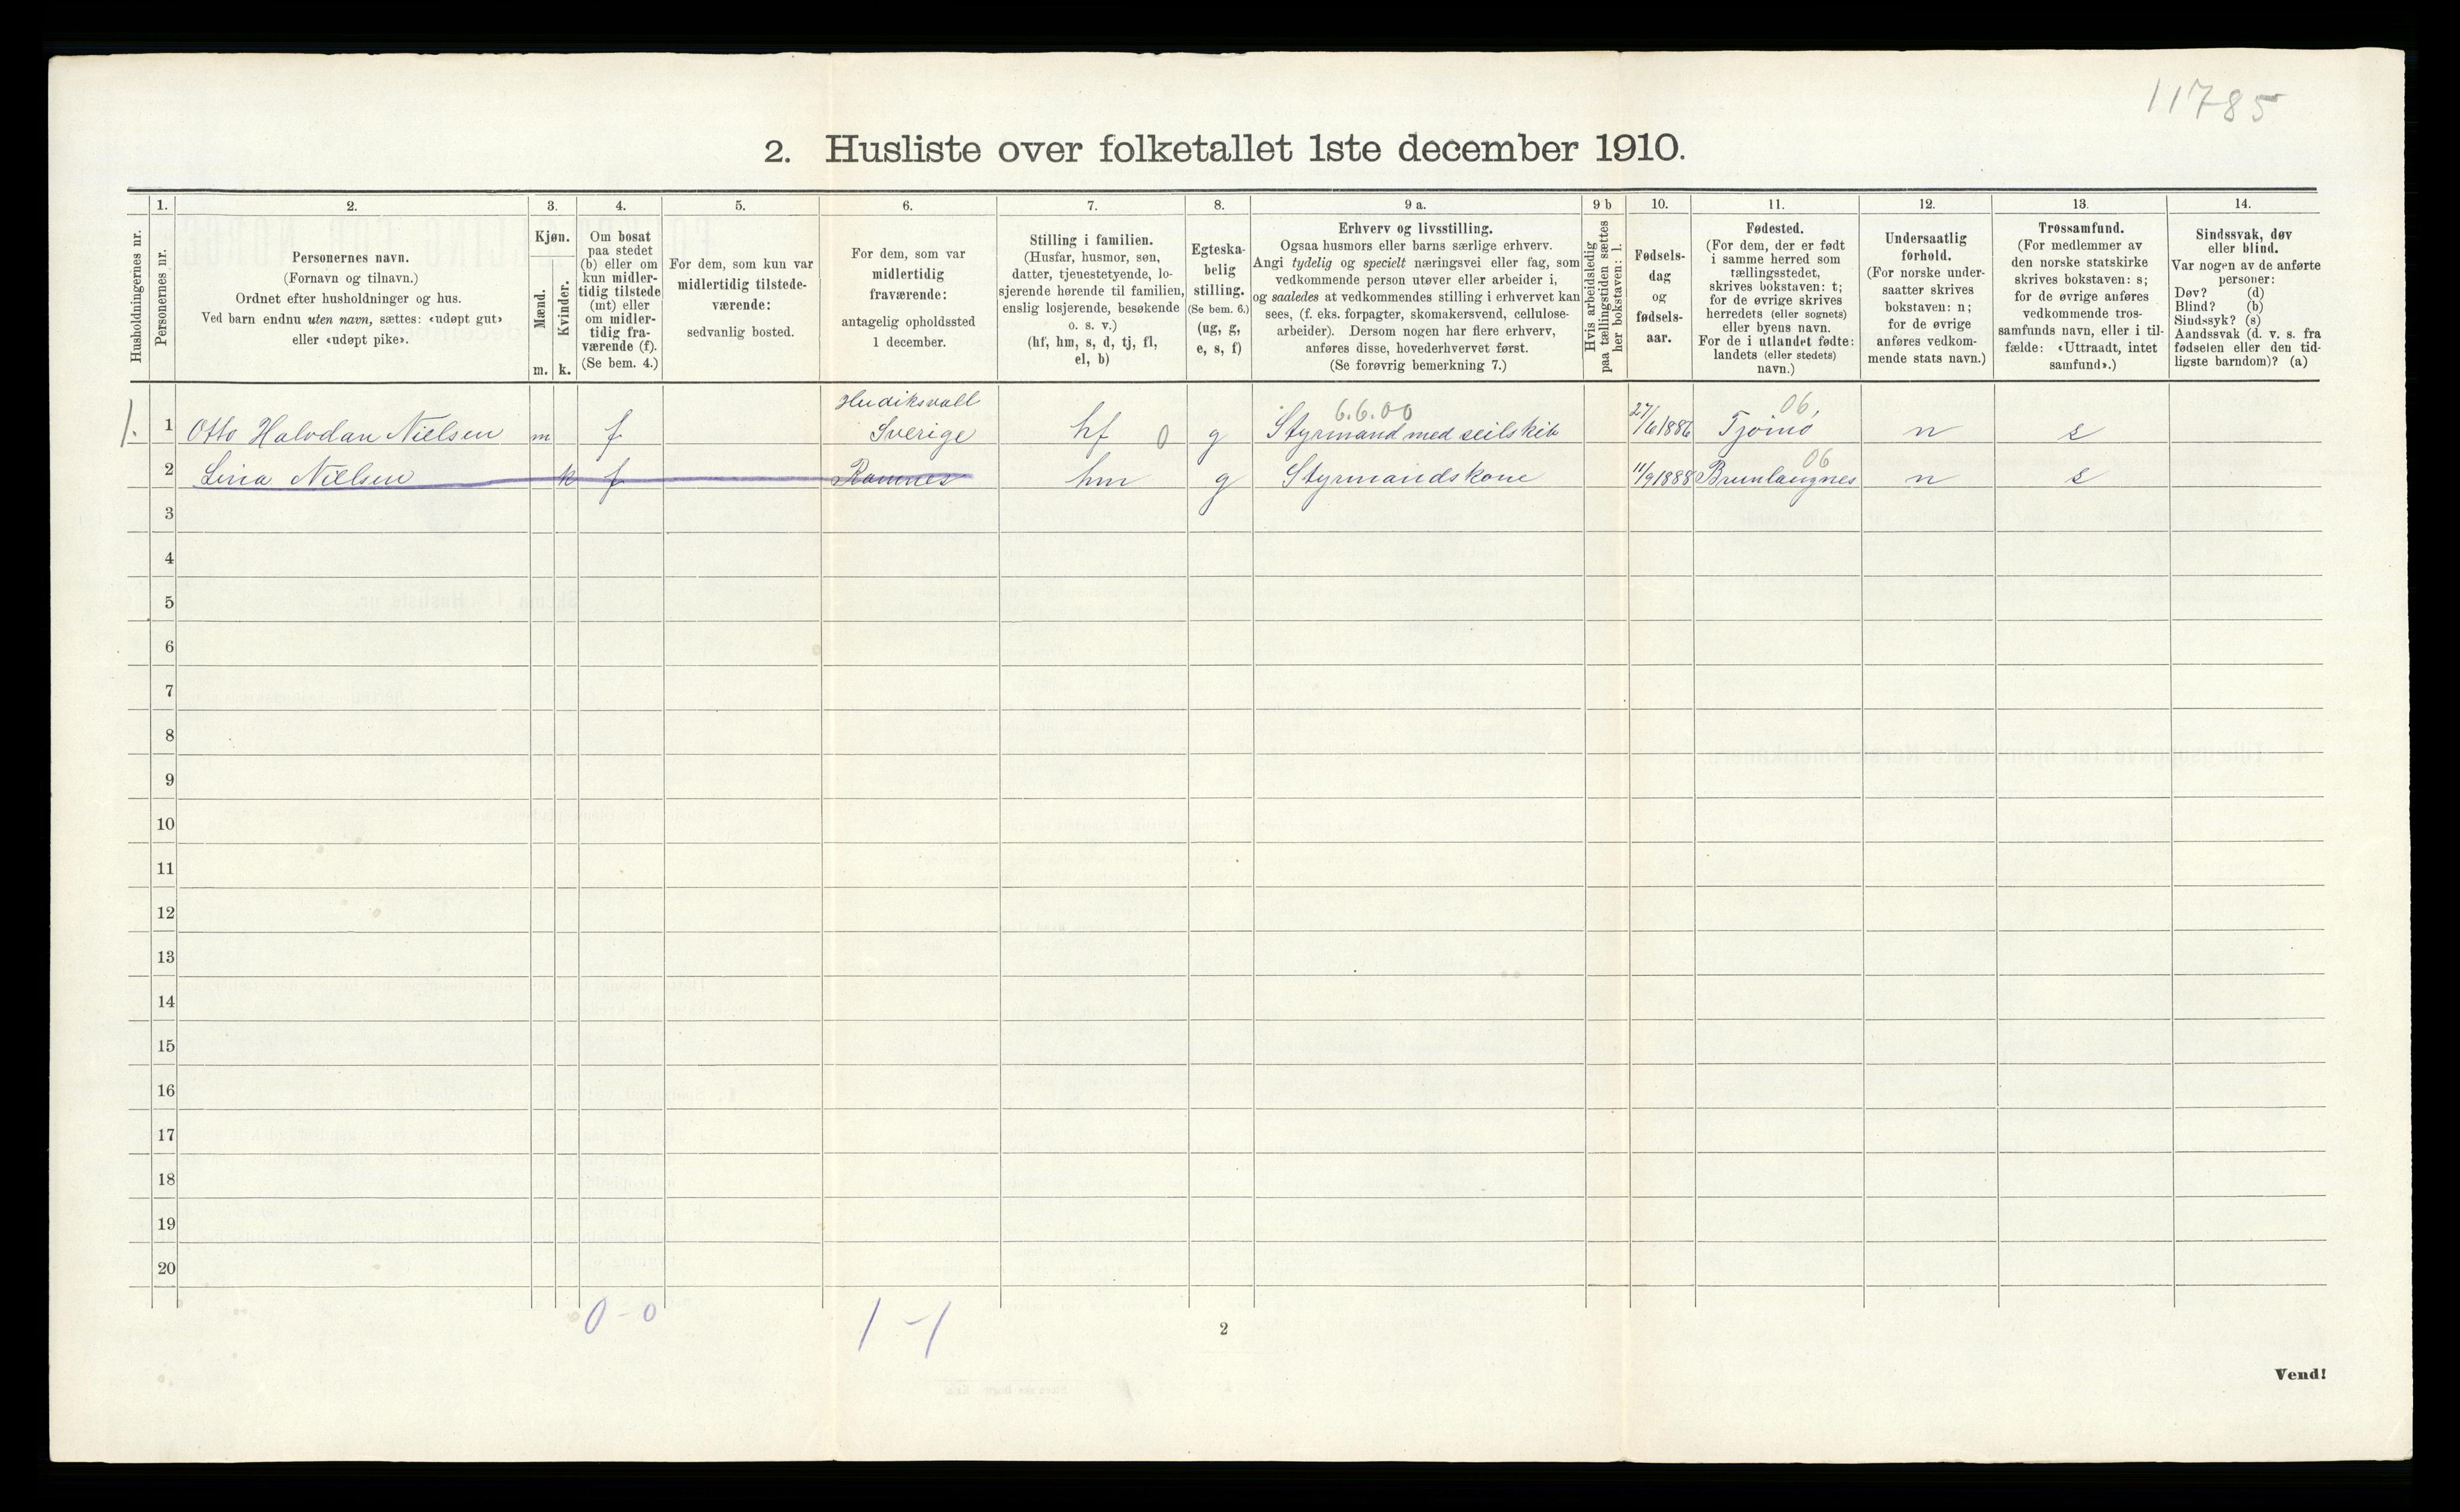 11785
2. Husliste over folketallet 1ste december 1910.
Husholdningernes nr.
1.
Personernes nr.
2.
Personernes navn.
(Fornavn og tilnavn.)
Ordnet efter husholdninger og hus.
Ved barn endnu uten navn, sættes: «udøpt gut»
eller «udøpt pike».
3.
Kjøn.
Mænd.
Kvinder.
m. k.
4.
Om bosat
paa stedet
(b) eller om
kun midler-
tidig tilstede
(mt) eller
om midler-
tidig fra-
værende (f).
(Se bem. 4.)
5.
For dem, som kun var
midlertidig tilstede-
værende:
sedvanlig bosted.
6.
For dem, som var
midlertidig
fraværende:
antagelig opholdssted
1 december.
7.
Stilling i familien.
(Husfar, husmor, søn,
datter, tjenestetyende, lo-
sjerende hørende til familien,
enslig losjerende, besøkende
o. s. v.)
(hf, hm, s, d, tj, fl,
el, b)
8.
Egteska-
belig
stilling.
(Se bem. 6.)
(ug, g,
e, s, f)
9 a.
Erhverv og livsstilling.
Ogsaa husmors eller barns særlige erhverv.
Angi tydelig og specielt næringsvei eller fag, som
vedkommende person utøver eller arbeider i,
og saaledes at vedkommendes stilling i erhvervet kan
sees, (f. eks. forpagter, skomakersvend, cellulose-
arbeider). Dersom nogen har flere erhverv,
anføres disse, hovederhvervet først.
(Se forøvrig bemerkning 7.)
9 b
Hvis arbeidsledig
paa tællingstiden sættes
her bokstaven: l.
10.
Fødsels-
dag
og
fødsels-
aar.
11.
Fødested.
(For dem, der er født
i samme herred som
tællingsstedet,
skrives bokstaven: t;
for de øvrige skrives
herredets (eller sognets)
eller byens navn.
For de i utlandet fødte:
landets (eller stedets)
navn.)
12.
Undersaatlig
forhold.
(For norske under-
saatter skrives
bokstaven: n;
for de øvrige
anføres vedkom-
mende stats navn.)
13.
Trossamfund.
(For medlemmer av
den norske statskirke
skrives bokstaven: s;
for de øvrige anføres
vedkommende tros-
samfunds navn, eller i til-
fælde: «Uttraadt, intet
samfund».)
14.
Sindssvak, døv
eller blind.
Var nogen av de anførte
personer:
Døv? (d)
Blind? (b)
Sindssyk? (s)
Aandssvak (d. v. s. fra
fødselen eller den tid-
ligste barndom)? (a)
Hudiksvall 6.6.00 06,
1. 1 Otto Halvdan Nielsen m f Sverige hf 0 g Styrmand med seilskib 27/6 1886 Tjømø n s
06
2 Lina Nielsen k f Ramnes hm g Styrmandskone 11/9 1888 Brunlangnes n s
3
4
5
6
7
8
9
10
11
12
13
14
15
16
17
18
19
20
0 - 0 1 - 1
2
Vend!